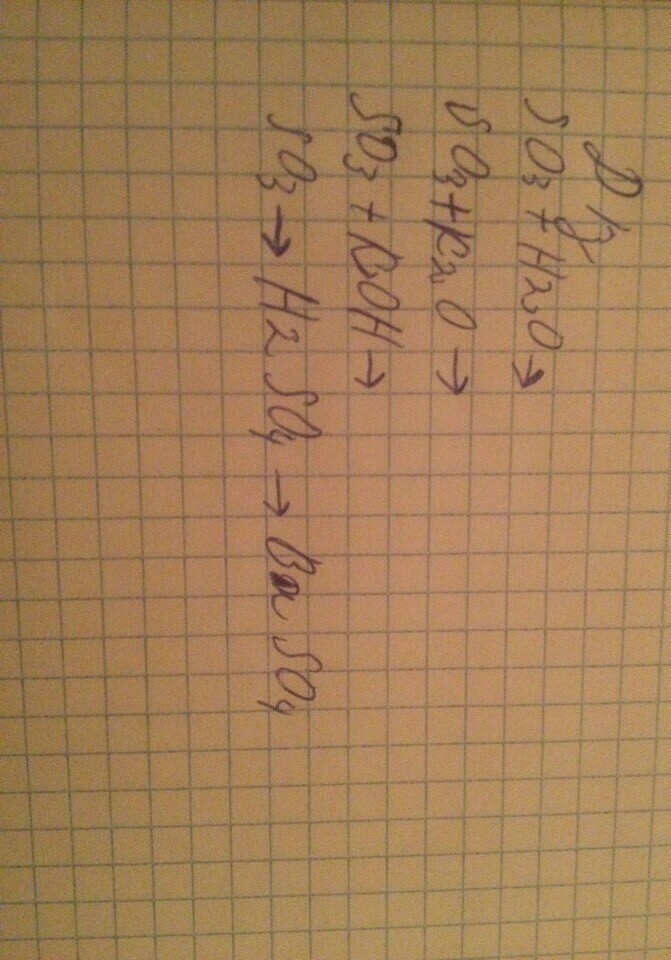 Д/з
SO₃ + H₂O →
SO₃ + K₂O →
SO₃ + KOH →
SO₃ → H₂SO₄ → BaSO₄